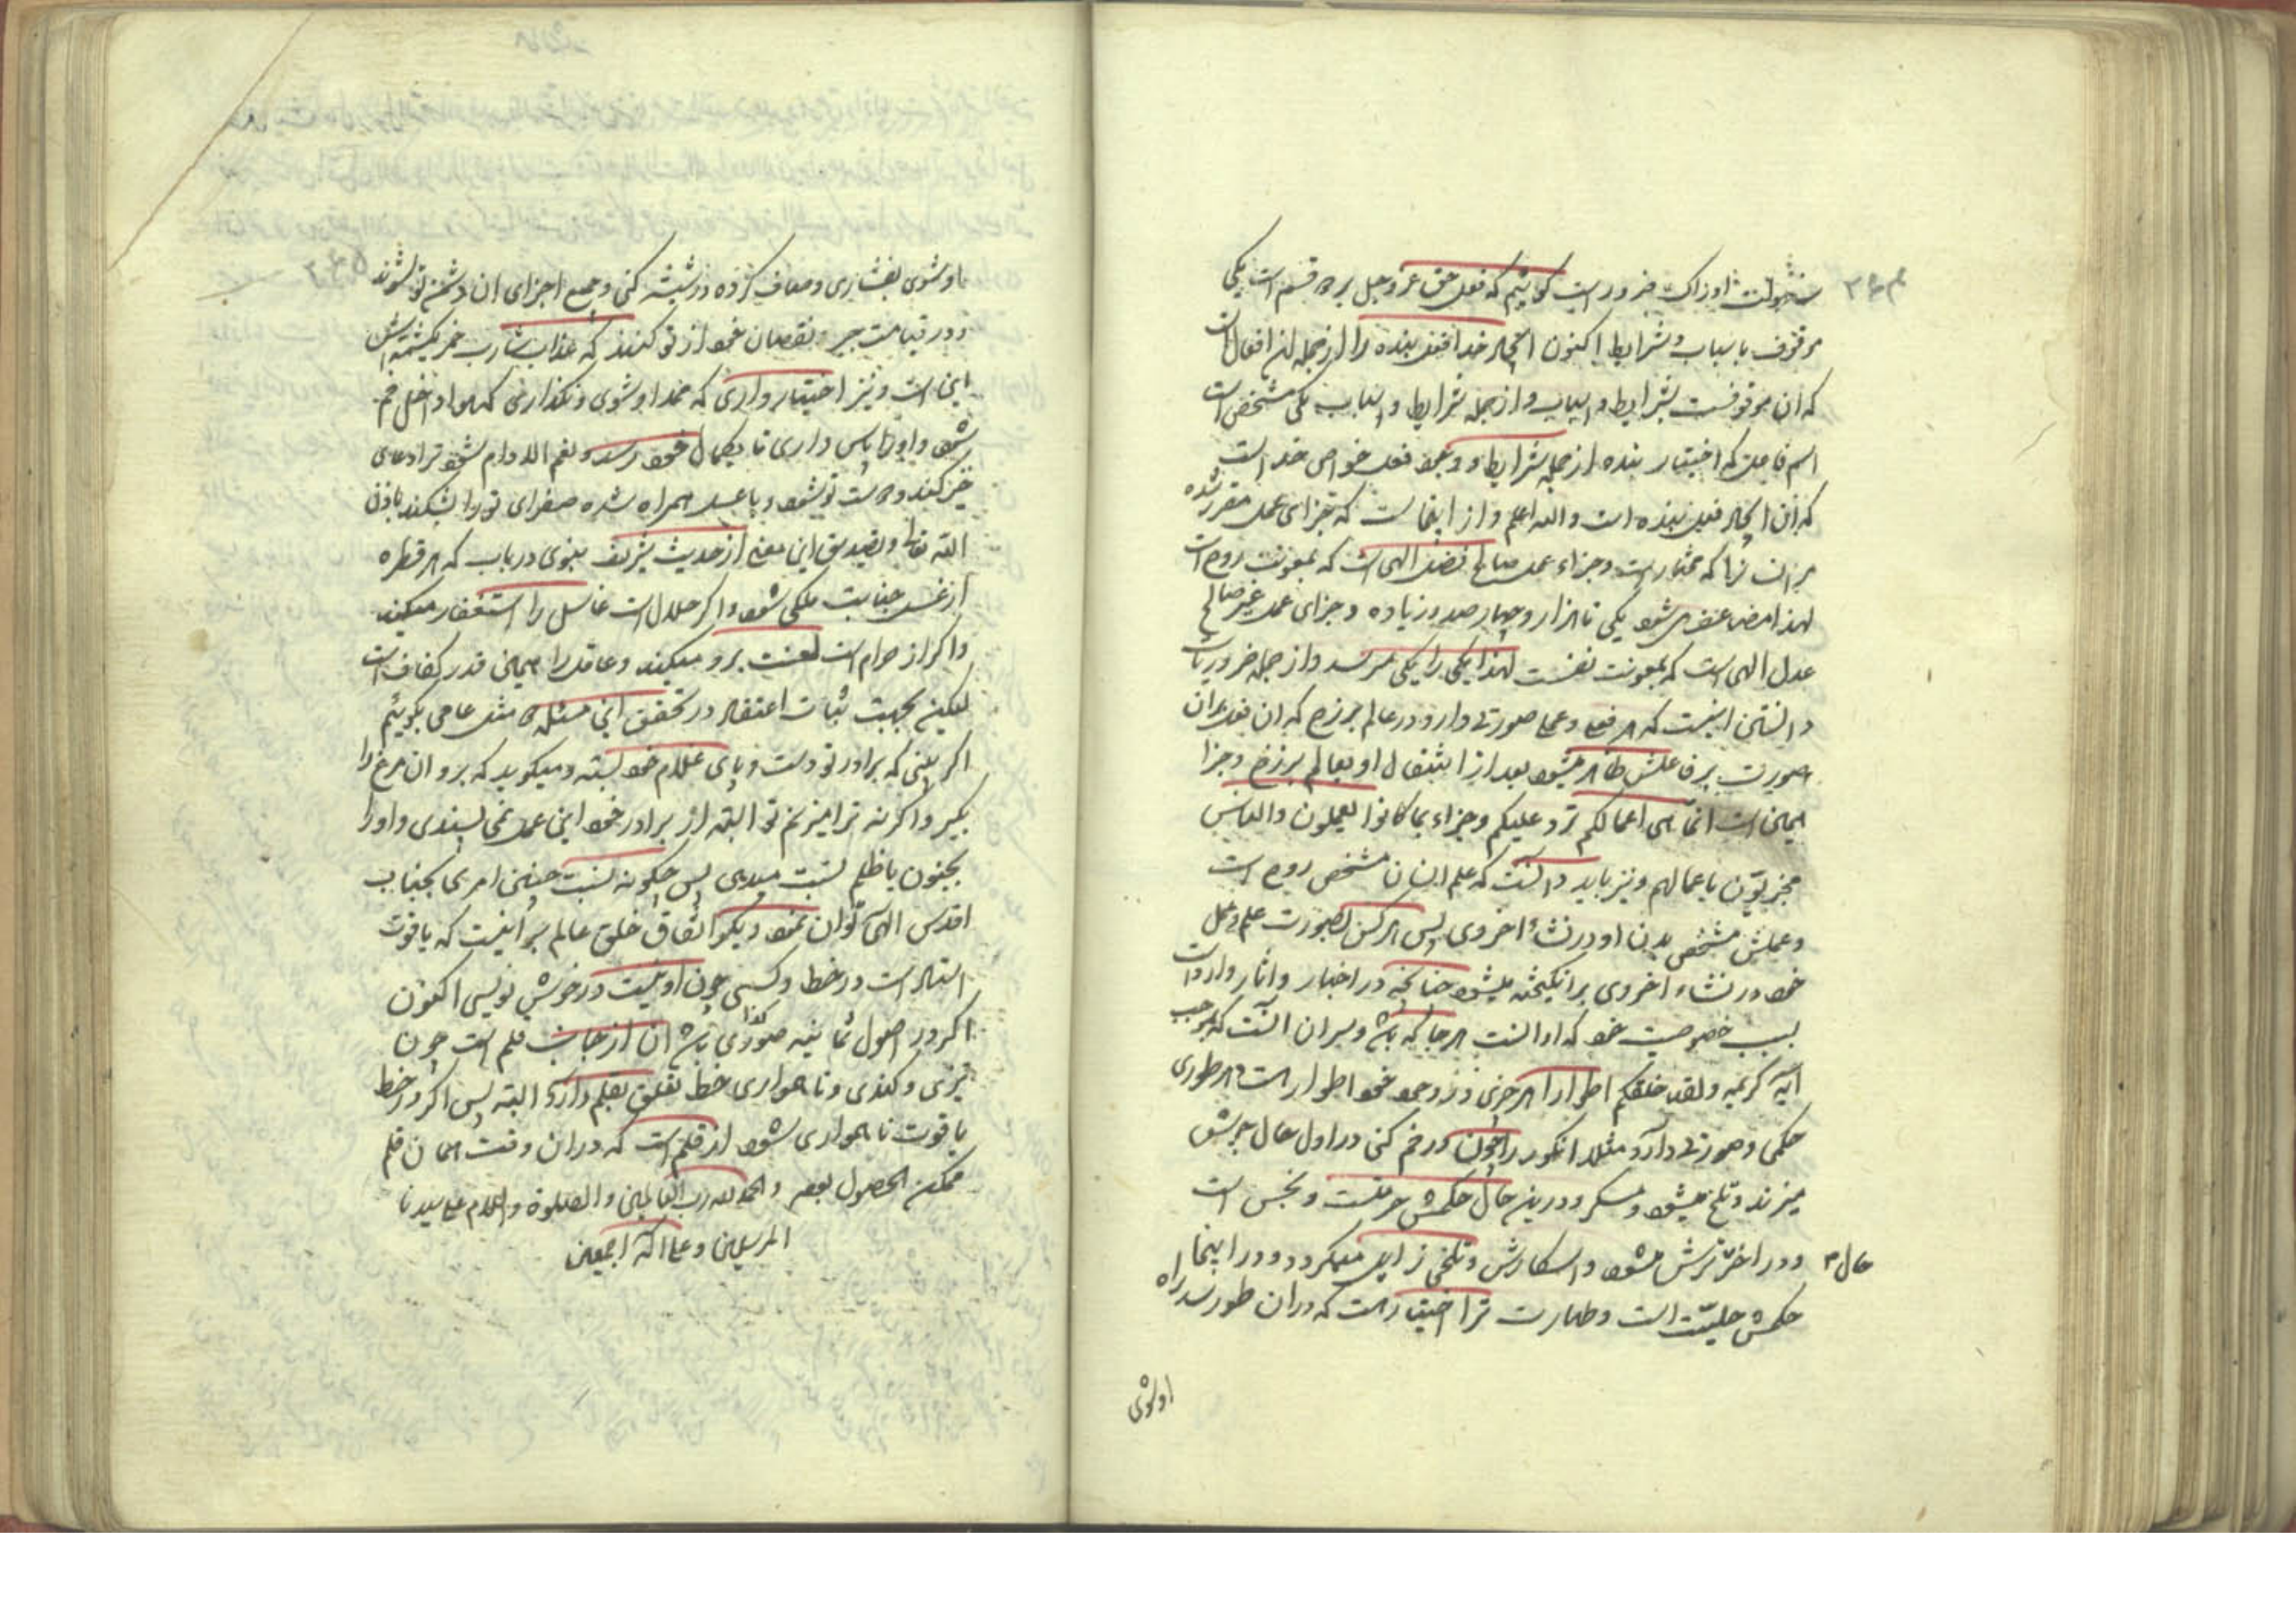 سهولت ادراک ضرور است گوئیم که فعل حق عز و جل بر دو قسم است یکی
موقوف باسباب و شرایط اکنون ایجاد خدا فعل بنده را از جمله این افعال است
که آن موقوفست بشرایط و اسباب و از جمله شرایط و اسباب یکی مشخص است
اسم فاعلیت که اختیار بنده از جمله شرایط وجود فعل خواص خداست
که آن ایجاد فعل بنده است والله اعلم و از اینجاست که جزای عمل مقرر شده
بر آن نه که مختار است و جزاء عمل صالح فضل الهی است که بمعونت روح است
لهذا مضاعف می شود یکی تا هزار و چهار صد و زیاده و جزای عمل غیر صالح
عدل الهی است که بمعونت نفس است لهذا یکی را یکی میرسد و از جمله ضروریات
دانستن اینست که هر فعلی و عملی صورتی دارد در عالم برزخ که آن فعل بران
صورت بر فاعلش ظاهر میشود بعد از انتقال او بعالم برزخ و جزا
همین است انما هی اعمالکم ترد علیکم و جزاء بما کانوا یعملون والناس
مجزیون باعمالهم و نیز باید دانست که علم انسان مشخص روح است
و عملش مشخص بدن او در نشاء اخروی پس هر کس بصورت علم و عمل
خود در نشاء اخروی برانگیخته میشود چنانچه در اخبار و آثار وارد است
بسبب خصوصیت خود که او راست هر جا که باشد و سر آن آنست که بموجب
آیه کریمه ولقد خلقکم اطوارا هر چیزی در وجود خود اطوار است و هر طوری
حکمی و صورتی دارد مثلا انگور را چون در خم کنی در اول حال بجوش
میزند و تلخ میشود و مسکر و درین حال حکمش حرمتست و نجس است
و در آخر ترش میشود و اسکارش و تلخی زایل میگردد و در اینجا
حال ۳
حکمش حلیت است و طهارت ترا اختیار است که دران طور سد راه
او شوی
او شوی بفشاری و صاف کرده در شیشه کنی و جمیع اجزای آن دشمن تو شوند
و در قیامت جبر نقصان خود از تو کنند که عذاب شارب خمر یکشمه اش
این است و نیز اختیار داری که ممد او شوی و نگذاری که هوا داخل خم
شود و او را پاس داری تا بکمال خود رسد و نعم الادام شود ترا دعای
خیر کند و دوست تو شود و با عسل همراه شده صفرای تو را بشکند باذن
الله تعالی و تصدیق این معنی از حدیث شریف نبوی دریاب که هر قطره
از غسل جنابت ملکی شود و اگر حلال است غاسل را استغفار میکند
و اگر از حرام است لعنت برو میکند و عاقل را همین قدر کفاف است
لیکن بجهت ثبات اعتقاد در تحقیق این مسئله مثل عامی بگوئیم
اگر بینی که برادر تو دست و پای غلام خود بسته و میگوید که برو آن مرغ را
بگیر و اگر نه ترا میزنم تو البته از برادر خود این عمل نمی پسندی و او را
بجنون یا ظلم نسبت میدهی پس چگونه نسبت چنین امری بجناب
اقدس الهی توان نمود دیگر اتفاق خلق عالم بر اینست که یاقوت
استاد است در خط و کسی چون او نیست در خوش نویسی اکنون
اگر در اصول ثمانیه صوری کذا باشد آن از جانب قلم است چون
تیزی و کندی و ناهمواری خط تعلق بقلم دارد البته پس اگر در خط
یاقوت ناهمواری شود از قلم است که دران وقت همان قلم
ممکن الحصول بود والحمد لله رب العالمین والصلوة والسلام علی سیدنا
المرسلین و علی اله اجمعین